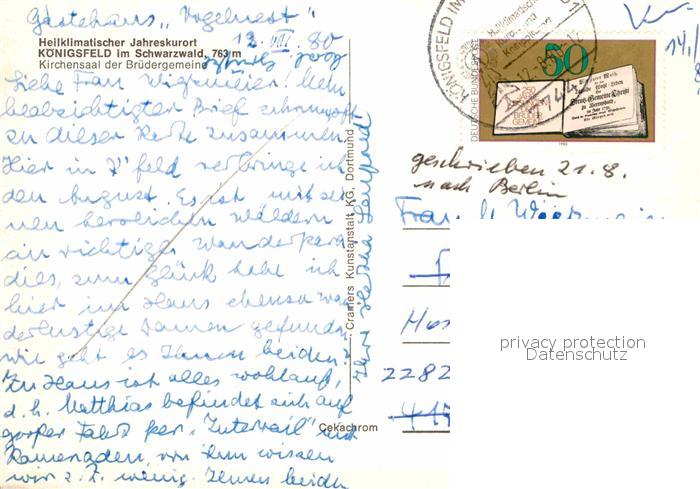 Gästehaus „Vogelnest"
Heilklimatischer Jahreskurort
KÖNIGSFELD im Schwarzwald, 763 m
Kirchensaal der Brüdergemeine
12. VIII. 80
Liebe Frau Wiegmeier! Mein
beabsichtigter Brief schrumpft
zu dieser Karte zusammen.
Hier in K'feld verbringe ich
den August. Es ist mit sei
nen herrlichen Wäldern
ein richtiges Wanderpara
dies, zum Glück habe ich
hier im Haus ebenso wan
derlustige Damen gefunden.
Wie geht es Ihnen beiden?
Zu Haus ist alles wohlauf,
d.h. Matthias befindet sich auf
großer Fahrt per „Interrail" mit
Kameraden, von ihm wissen
wir z.Z. wenig. Ihnen beiden
Cramers Kunstanstalt KG, Dortmund
Cekachrom
KÖNIGSFELD IM
DEUTSCHE BUNDESPOST
50
250
1980
14./
geschrieben 21.8.
nach Berlin
Frau
2282
privacy protection
Datenschutz